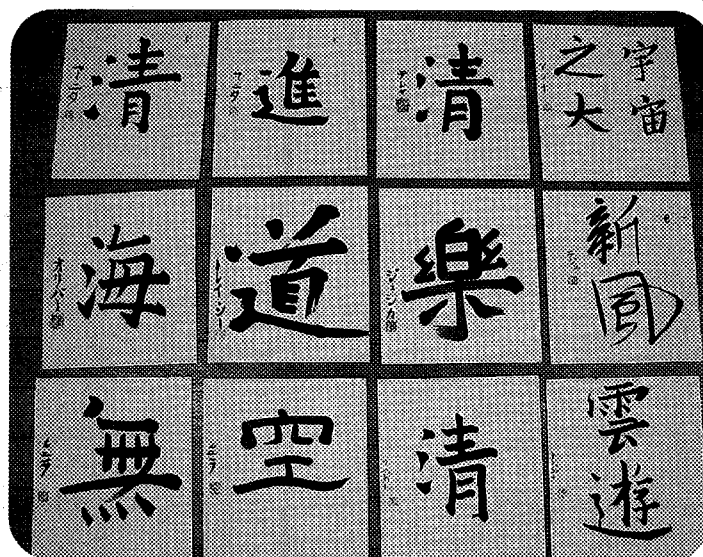 清
進
清
宇宙
之大
海
道
樂
新風
無
空
清
雲遊